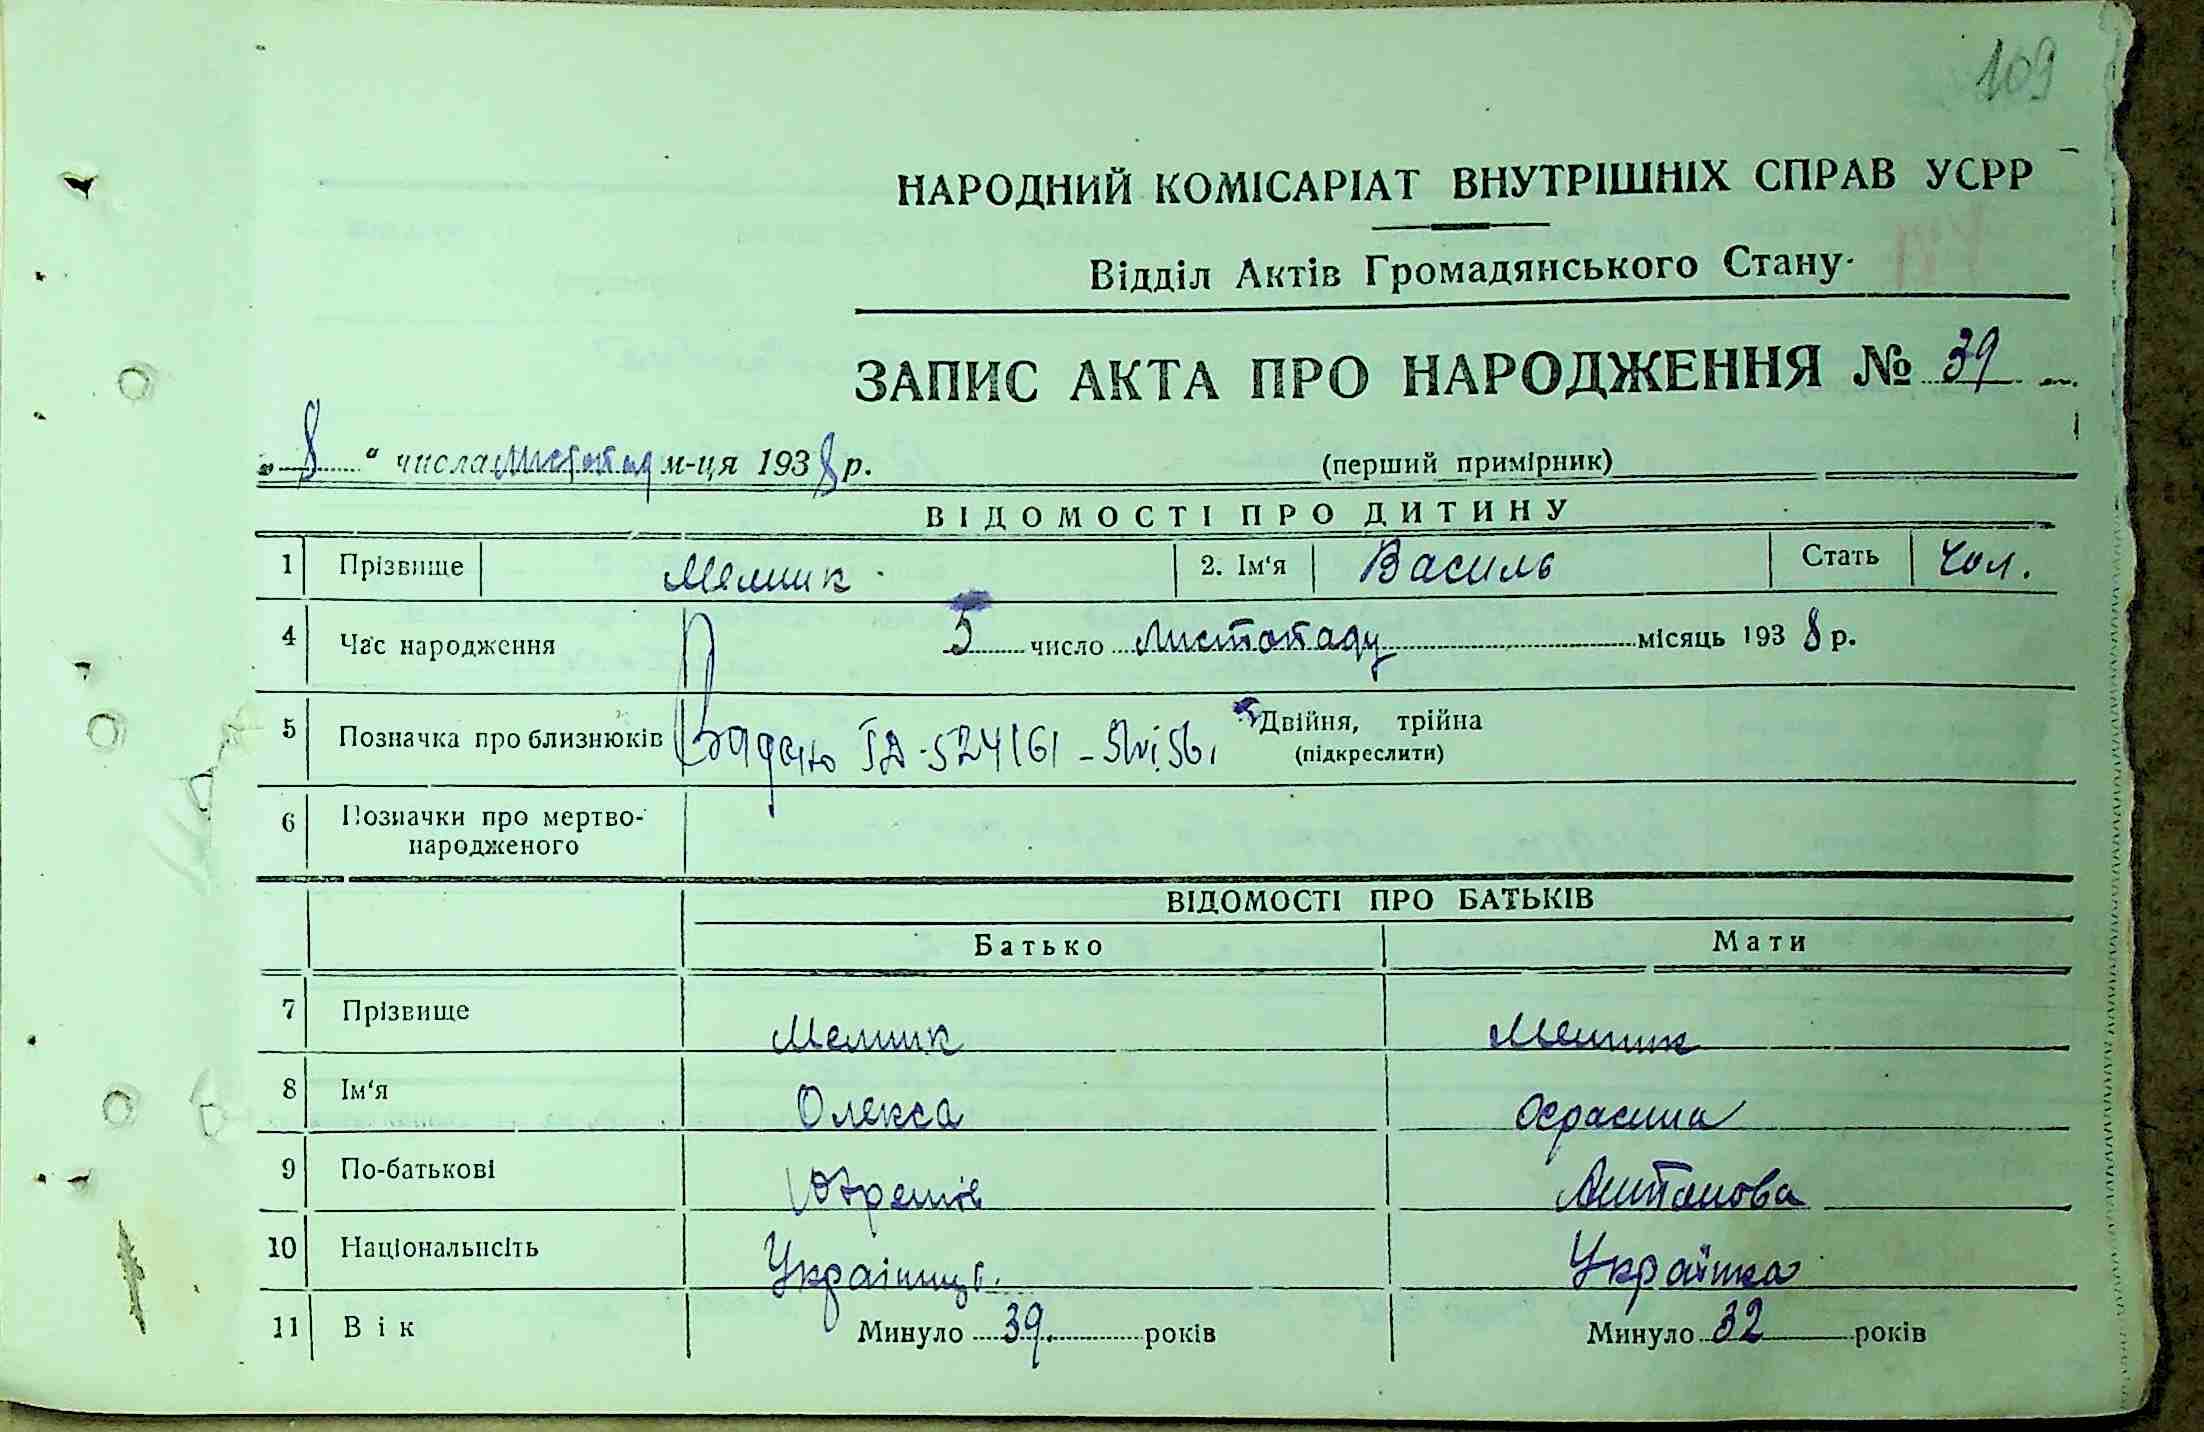 109
НАРОДНИЙ КОМІСАРІАТ ВНУТРІШНІХ СПРАВ УСРР
Відділ Актів Громадянського Стану
ЗАПИС АКТА ПРО НАРОДЖЕННЯ № 39
„8“ числа листопад м-ця 1938 р. (перший примірник)
ВІДОМОСТІ ПРО ДИТИНУ
1 Прізвище Мелник 2. Ім'я Василь Стать чол.
4 Час народження 5 число листопаду місяць 1938 р.
5 Позначка про близнюків Двійня, трійна
(підкреслити)
6 Позначки про мертво-
народженого
ВІДОМОСТІ ПРО БАТЬКІВ
Батько Мати
7 Прізвище Мелник Мелник
8 Ім'я Олекса
9 По-батькові Антонова
10 Національність Українець Українка
11 Вік Минуло 39 років Минуло 32 років